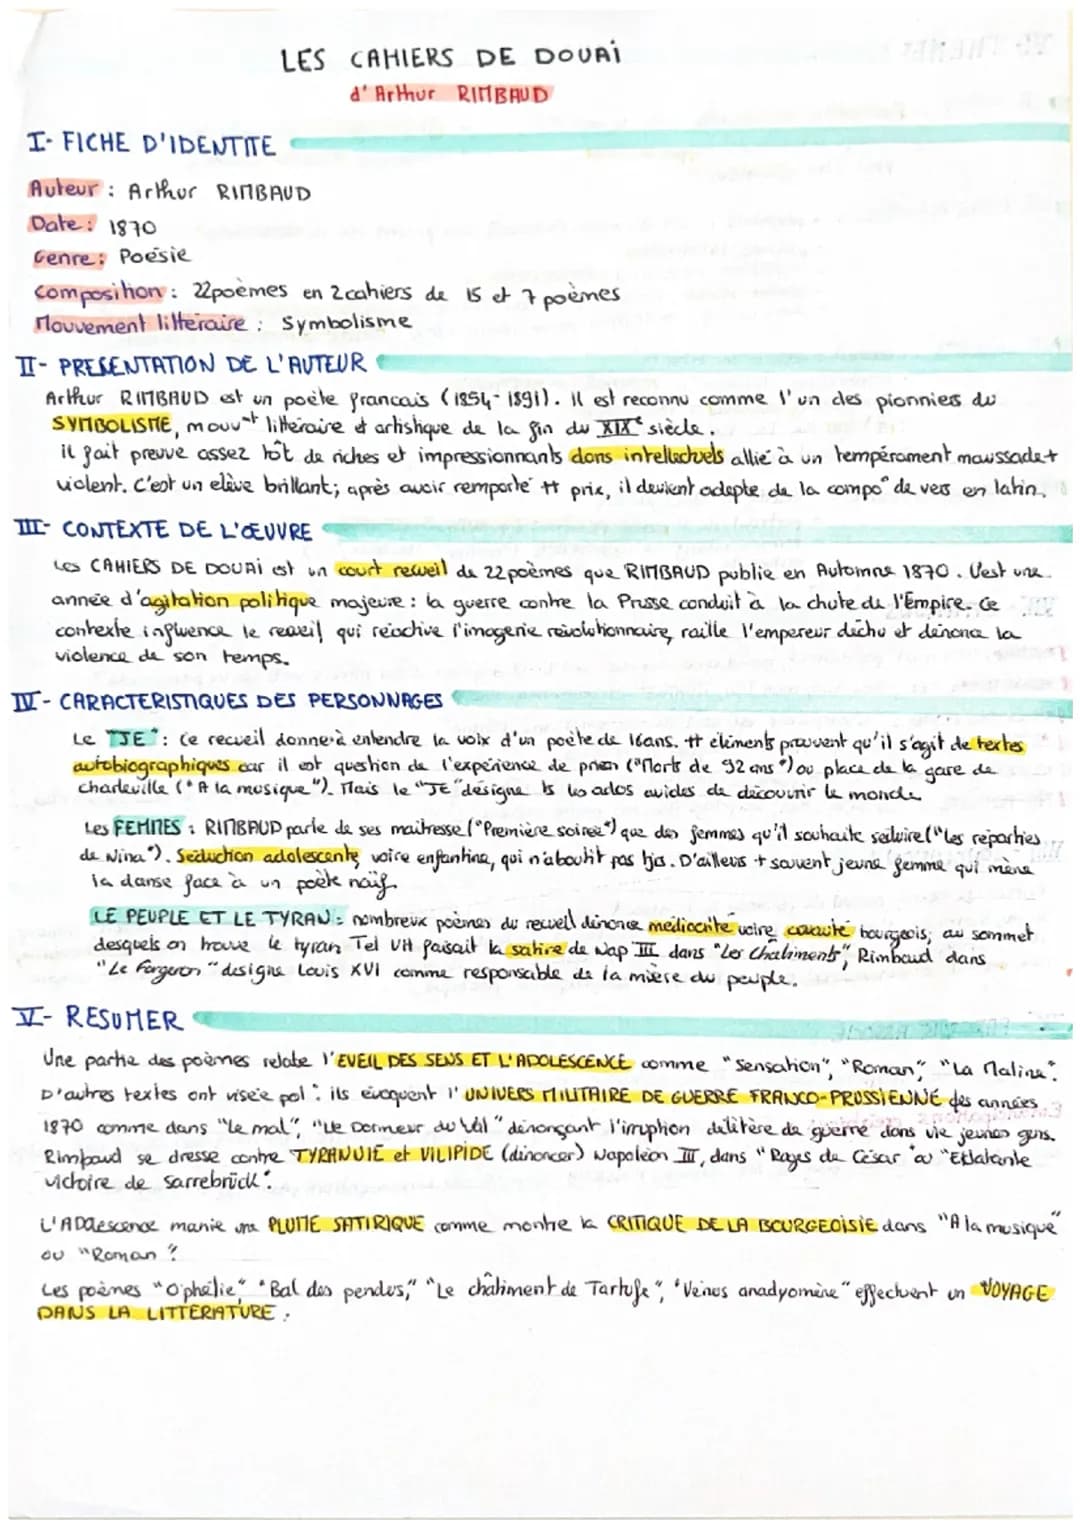 LES CAHIERS DE DOUAi
d'Arthur RIMBAUD
I- FICHE D'IDENTITE
Auteur : Arthur RIMBAUD
Date : 1870
Genre : Poésie
Composition : 22poèmes en 2cahiers de 15 et 7 poèmes
Mouvement littéraire : Symbolisme
II- PRESENTATION DE L'AUTEUR
Arthur RIMBAUD est un poète francais (1854-1891). Il est reconnu comme l'un des pionniers du
SYMBOLISME, mouv^nt littéraire et artistique de la fin du XIX^e siècle.
il fait preuve assez tôt de riches et impressionnants dons intellectuels allié à un tempérament maussade+
violent. C'est un elève brillant; après avoir remporté tt prix, il devient adepte de la compo° de vers en latin.
III- CONTEXTE DE L'ŒUVRE
Les CAHIERS DE DOUAi est un court recueil de 22poèmes que RIMBAUD publie en Automne 1870. C'est une
année d'agitation politique majeure : la guerre contre la Prusse conduit à la chute de l'Empire. Ce
contexte influence le recueil qui réactive l'imagerie révolutionnaire, raille l'empereur déchu et dénonce la
violence de son temps.
IV- CARACTERISTIQUES DES PERSONNAGES
Le "JE" : Ce recueil donne à entendre la voix d'un poète de 16ans. tt éléments prouvent qu'il s'agit de textes
autobiographiques car il est question de l'expérience de prison ("Morts de 92 ans") ou place de la gare de
charleville ("A la musique"). Mais le "JE" désigne ts les ados avides de découvrir le monde
Les FEMMES : RIMBAUD parle de ses maitresse ("Première soirée") que des femmes qu'il souhaite séduire ("Les reparties
de Nina"). Séduction adolescente, voire enfantine, qui n'aboutit pas tjrs. D'ailleurs + souvent jeune femme qui mène
la danse face à un poète naïf.
LE PEUPLE ET LE TYRAN : nombreux poèmes du recueil dénonce médiocrité voire bourgeois, au sommet
desquels on trouve le tyran Tel VH faisait la satire de Nap III dans "Les Chatiments", Rimbaud dans
"Le Forgeron" designe Louis XVI comme responsable de la misère du peuple.
V- RESUMER
Une partie des poèmes relate l'EVEIL DES SENS ET L'ADOLESCENCE comme "Sensation", "Roman", "La Maline".
D'autres textes ont visée pol : ils évoquent l'UNIVERS MILITAIRE DE GUERRE FRANCO-PRUSSIENNE des années
1870 comme dans "Le mal", "Le Dormeur du Val" dénonçant l'irruption délitère de guerre dans vie jeunes gens.
Rimbaud se dresse contre TYRANNIE et VILIPIDE (dénoncer) Napoléon III, dans "Rages de César" ou "Eclatante
victoire de Sarrebrück".
L'Adolescence manie une PLUME SATIRIQUE comme montre la CRITIQUE DE LA BOURGEOISIE dans "A la musique"
ou "Roman".
Les poèmes "Ophélie", "Bal des pendus", "Le châtiment de Tartufe", "Vénus anadyomène" effectuent un VOYAGE
DANS LA LITTERATURE.